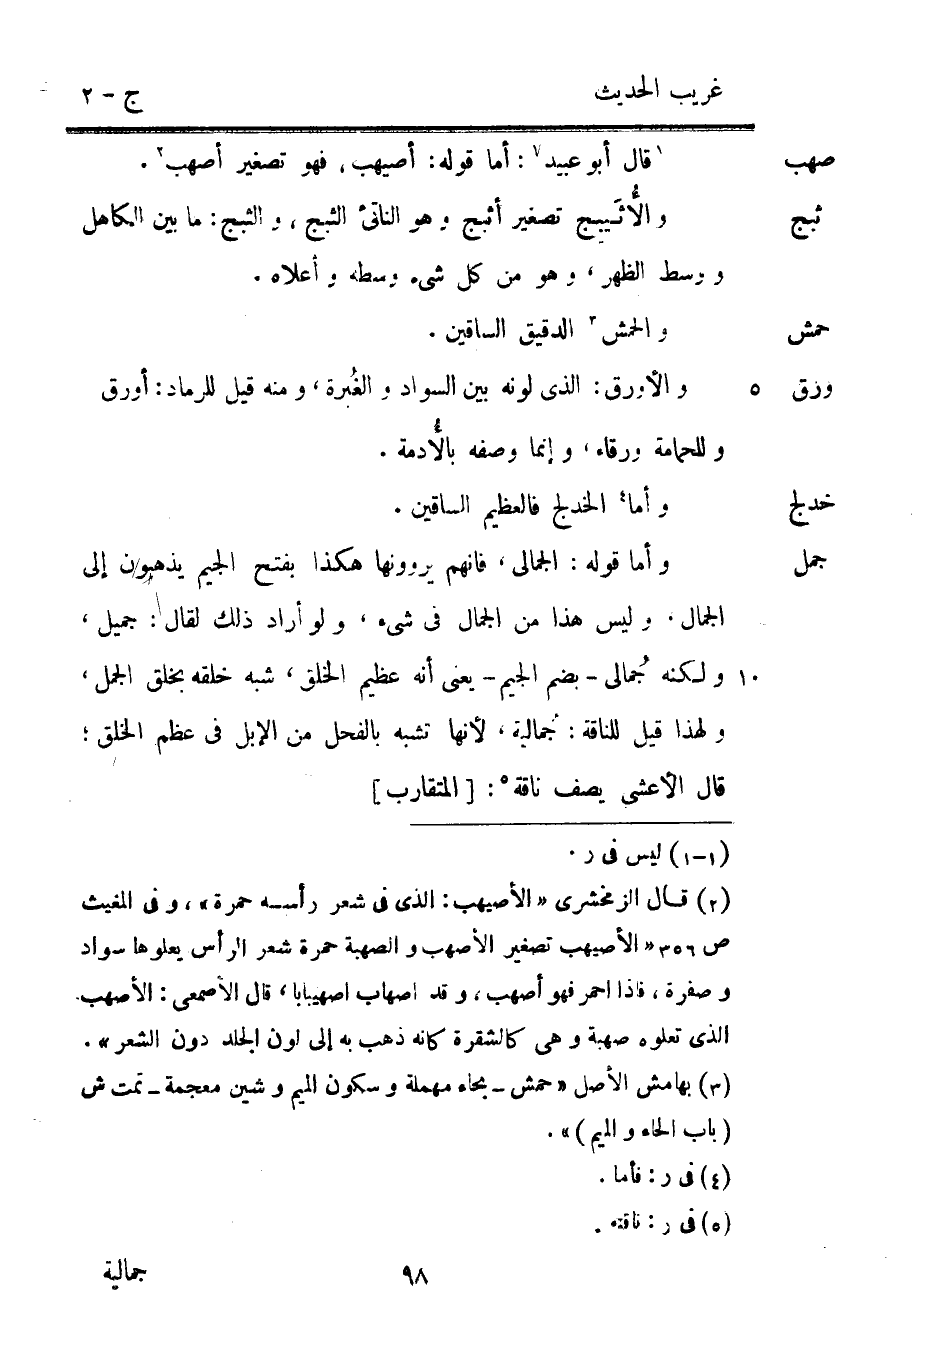 غريب الحديث ج - ٢
صهب ١قال أبو عبيد٧: أما قوله: أصيهب، فهو تصغير أصهب٢.
ثبج و الأُثَيبِج تصغير أثبج و هو الناتئ الثبج، و الثبج: ما بين الكاهل
و وسط الظهر، و هو من كل شىء وسطه و أعلاه.
حمش و الحمش٣ الدقيق الساقين.
ورق ٥ و الأورق: الذى لونه بين السواد و الغُبرة، و منه قيل للرماد: أورق
و للحمامة ورقاء، و إنما وصفه بالأُدمة.
خدلج و أما٤ الخدلج فالعظيم الساقين.
جمل و أما قوله: الجمالى، فانهم يروونها هكذا بفتح الجيم يذهبون إلى
الجمال. و ليس هذا من الجمال فى شىء، و لو أراد ذلك لقال: جميل،
١٠ و لكنه جُمالى - بضم الجيم - يعنى أنه عظيم الخلق، شبه خلقه بخلق الجمل،
و لهذا قيل للناقة: جُمالية، لأنها تشبه بالفحل من الإبل فى عظم الخلق؛
قال الأعشى يصف ناقة٥: [المتقارب]
(١-١) ليس فى ر.
(٢) قال الزمخشرى «الأصيهب: الذى فى شعر رأسه حمرة»، و فى المغيث
ص ٣٥٦ «الأصيهب تصغير الأصهب و الصهبة حمرة شعر الرأس يعلوها سواد
و صفرة، فاذا احمر فهو أصهب، و قد اصهاب اصهيبابا، قال الأصمعى: الأصهب
الذى تعلوه صهبة و هى كالشقرة كانه ذهب به إلى لون الجلد دون الشعر».
(٣) بهامش الأصل «حمش - بحاء مهملة و سكون الميم و شين معجمة - تمت ش
(باب الحاء و الميم)».
(٤) فى ر: فأما.
(٥) فى ر: ناقته.
٩٨ جمالية